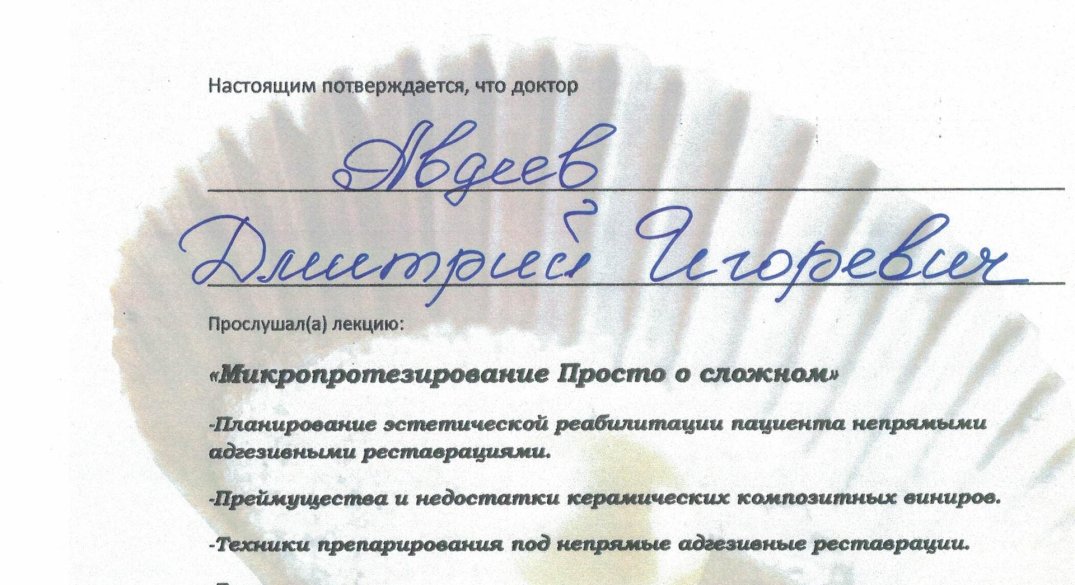 Настоящим потверждается, что доктор
Авдеев
Дмитрий Игоревич
Прослушал(а) лекцию:
«Микропротезирование Просто о сложном»
-Планирование эстетической реабилитации пациента непрямыми
адгезивными реставрациями.
-Преймущества и недостатки керамических композитных виниров.
-Техники препарирования под непрямые адгезивные реставрации.